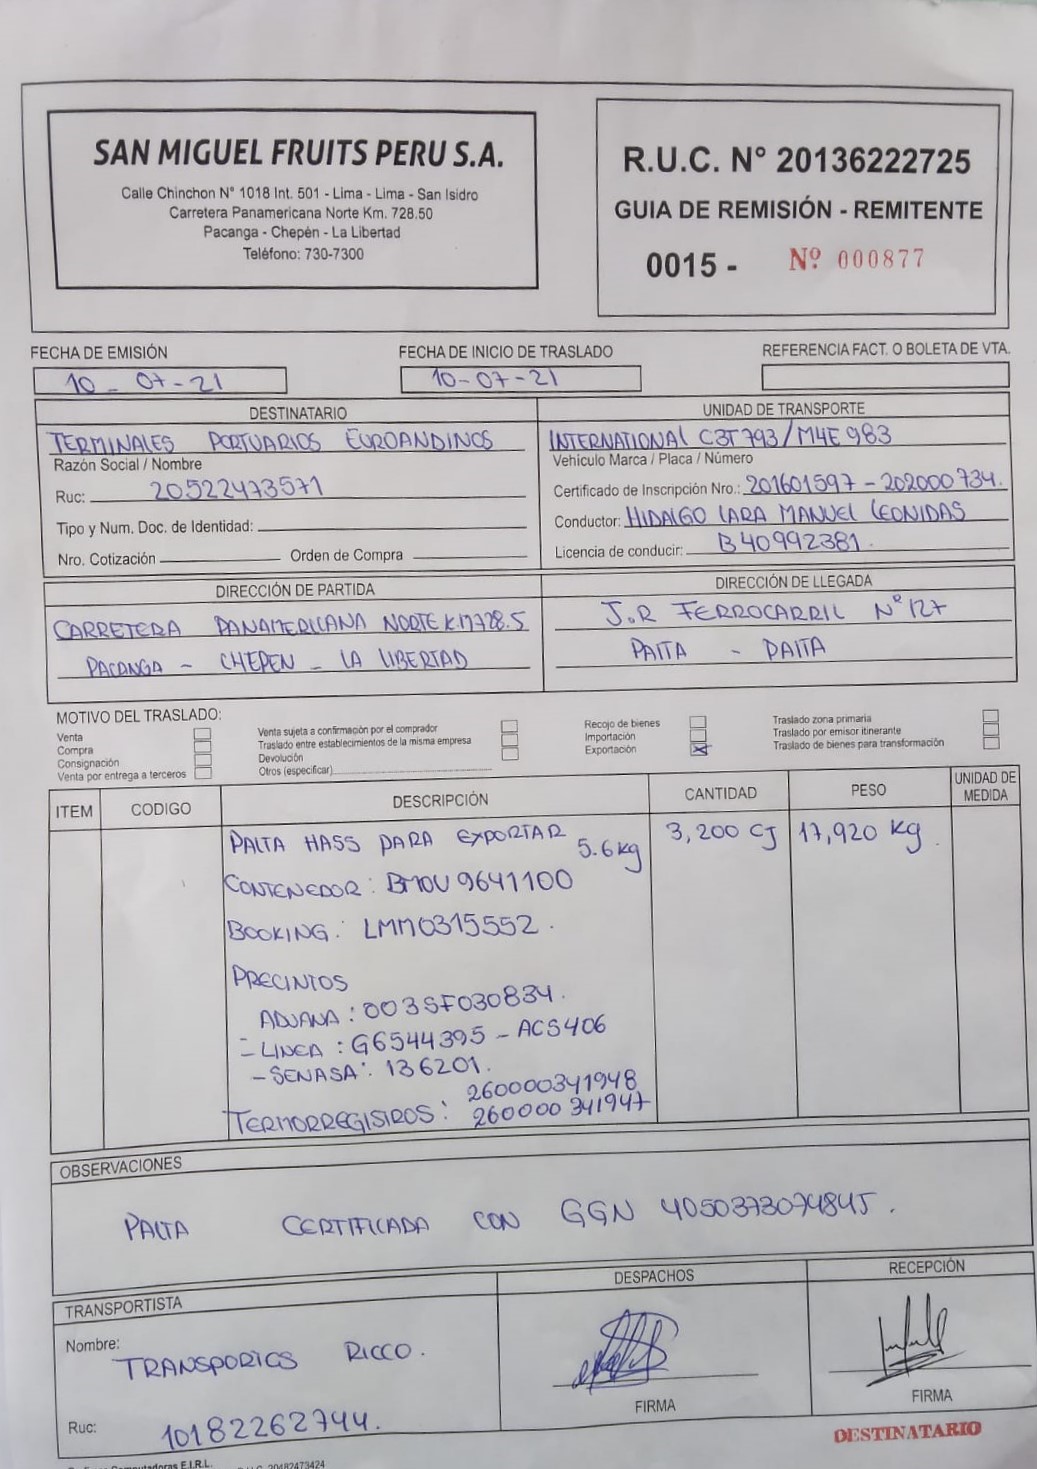 SAN MIGUEL FRUITS PERU S.A.
Calle Chinchon N° 1018 Int. 501 - Lima - Lima - San Isidro
Carretera Panamericana Norte Km. 728.50
Pacanga - Chepén - La Libertad
Teléfono: 730-7300
R.U.C. N° 20136222725
GUIA DE REMISIÓN - REMITENTE
0015 - Nº 000877
FECHA DE EMISIÓN
10-07-21
FECHA DE INICIO DE TRASLADO
10-07-21
REFERENCIA FACT. O BOLETA DE VTA.
DESTINATARIO
TERMINALES PORTUARIOS EUROANDINOS
Razón Social / Nombre
Ruc: 20522473571
Tipo y Num. Doc. de Identidad:
Nro. Cotización Orden de Compra
UNIDAD DE TRANSPORTE
INTERNATIONAL C3T793/M4E983
Vehículo Marca / Placa / Número
Certificado de Inscripción Nro.: 201601597 - 202000734.
Conductor: HIDALGO LARA MANUEL LEONIDAS
Licencia de conducir: B40992381.
DIRECCIÓN DE PARTIDA
CARRETERA PANAMERICANA NORTE KM728.5
PACANGA - CHEPEN - LA LIBERTAD
DIRECCIÓN DE LLEGADA
J.R FERROCARRIL N°127
PAITA - PAITA
MOTIVO DEL TRASLADO:
Venta
Compra
Consignación
Venta por entrega a terceros
Venta sujeta a confirmación por el comprador
Traslado entre establecimientos de la misma empresa
Devolución
Otros (especificar)
Recojo de bienes
Importación
Exportación X
Traslado zona primaria
Traslado por emisor itinerante
Traslado de bienes para transformación
ITEM CODIGO DESCRIPCIÓN CANTIDAD PESO UNIDAD DE MEDIDA
PALTA HASS PARA EXPORTAR 5.6kg 3,200 CJ 17,920 Kg.
CONTENEDOR: BMOU 9641100
BOOKING: LMM0315552.
PRECINTOS
ADUANA: 003SF030834.
- LINEA: G6544395 - ACS406
- SENASA: 136201.
260000341948
TERMORREGISTROS: 260000341947
OBSERVACIONES
PALTA CERTIFICADA CON GGN 4050373074845.
TRANSPORTISTA
Nombre: TRANSPORTES RICCO.
Ruc: 10182262744.
DESPACHOS
FIRMA
RECEPCIÓN
FIRMA
DESTINATARIO
Computadoras E.I.R.L. 20482473424